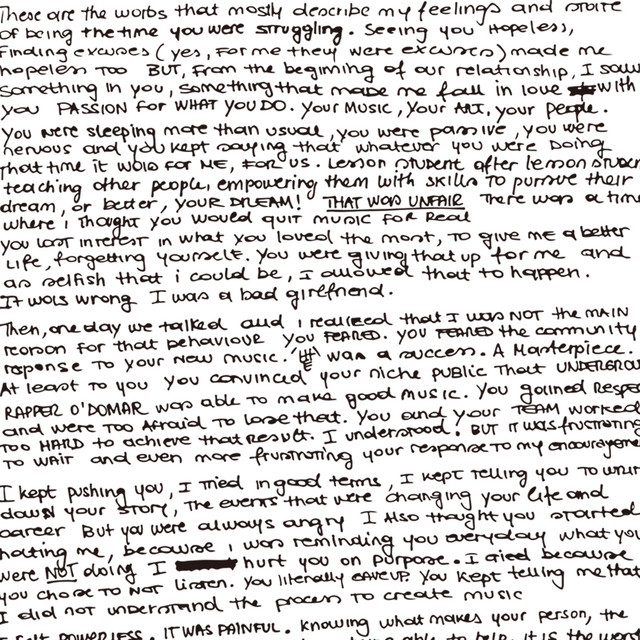 These are the words that mostly describe my feelings and state
of being the time you were struggling. Seeing you Hopeless,
Finding excuses (yes, for me they were excuses) made me
hopeless too BUT, From the beginning of our relationship, I saw
something in you, something that made me fall in love with
you PASSION for WHAT YOU DO. Your MUSIC, Your ART, your People.
You were sleeping more than usual, you were passive, you were
nervous and you kept saying that whatever you were Doing
that time it was FOR ME, FOR US. Lesson student after lesson student
teaching other people, empowering them with skills to pursue their
dream, or better, YOUR DREAM! THAT WAS UNFAIR There was a time
where i thought you would quit music for Real
you lost interest in what you loved the most, to give me a better
Life, forgetting yourself. You were giving that up for me and
as selfish that i could be, I allowed that to happen.
It was wrong I was a bad girlfriend.
Then, one day we talked and i realized that I was NOT the MAIN
reason for that behaviour You FEARED. YOU FEARED the community
response to your new music. was a success. A Masterpiece.
At least to you you convinced your niche public That UNDERGROU
RAPPER O'DOMAR was able to make good music. You gained Respe
and were too afraid to lose that. You and your TEAM worked
too HARD to achieve that Result. I understood. BUT IT was frustrating
to WAIT and even more frustrating your response to my encourageme
I kept pushing you, I tried in good terms, I kept telling you to write
down your story, the events that were changing your life and
career But you were always angry I Also thought you started
hating me, because i was reminding you everyday what you
were NOT doing I hurt you on purpose. I cried because
you chose to NOT listen. You literally GAVE UP. You kept telling me that
I did not understand the process to create music
I felt POWERLESS. IT WAS PAINFUL. Knowing what makes your person, the
able to help, it is the wors